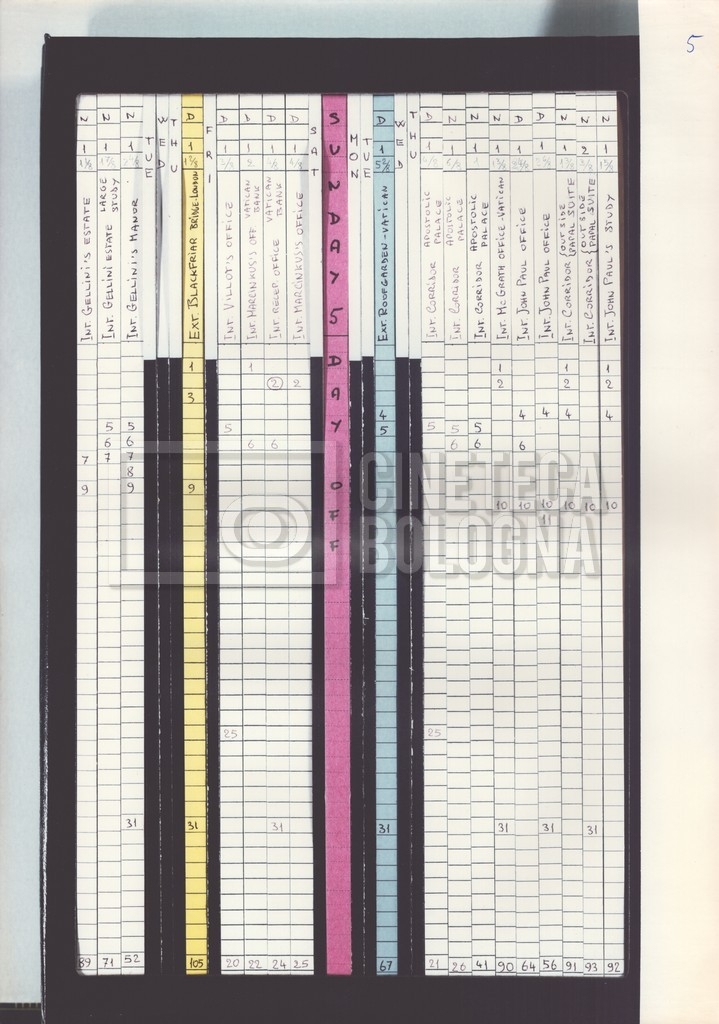 5
N 1 1⅛ INT. GELLINI'S ESTATE 7 9 89
N 1 INT. GELLINI ESTATE LARGE STUDY 5 6 7 71
N 1 INT. GELLINI'S MANOR 5 6 7 8 9 31 52
TUE
WED
THU
D 1 EXT. BLACKFRIAR BRINGE-LONDON 1 3 9 31 105
FRI
D 1 INT. VILLOT'S OFFICE 5 25 20
D 1 2 INT. MARCINKUS'S OFF VATICAN BANK 1 6 22
D 1 INT. RECEP. OFFICE VATICAN BANK 2 6 31 24
D 1 INT. MARCINKUS'S OFFICE 2 25
SAT
SUNDAYS DAY OFF
MON
TUE
D 1 EXT. ROOFGARDEN-VATICAN 4 5 31 67
WED
THU
D 1 INT. CORRIDOR APOSTOLIC PALACE 5 25 21
N 1 INT. CORRIDOR APOSTOLIC PALACE 5 6 26
N 1 1 INT. CORRIDOR APOSTOLIC PALACE 5 6 41
N 1 INT. MC GRATH OFFICE-VATICAN 1 2 10 31 90
D 1 INT. JOHN PAUL OFFICE 4 6 10 64
D 1 INT. JOHN PAUL OFFICE 4 10 11 31 56
N 1 INT. CORRIDOR OUTSIDE PAPAL SUITE 1 2 4 10 91
N 2 INT. CORRIDOR OUTSIDE PAPAL SUITE 10 31 93
N 1 INT. JOHN PAUL'S STUDY 1 2 4 10 92
CINETECA
BOLOGNA